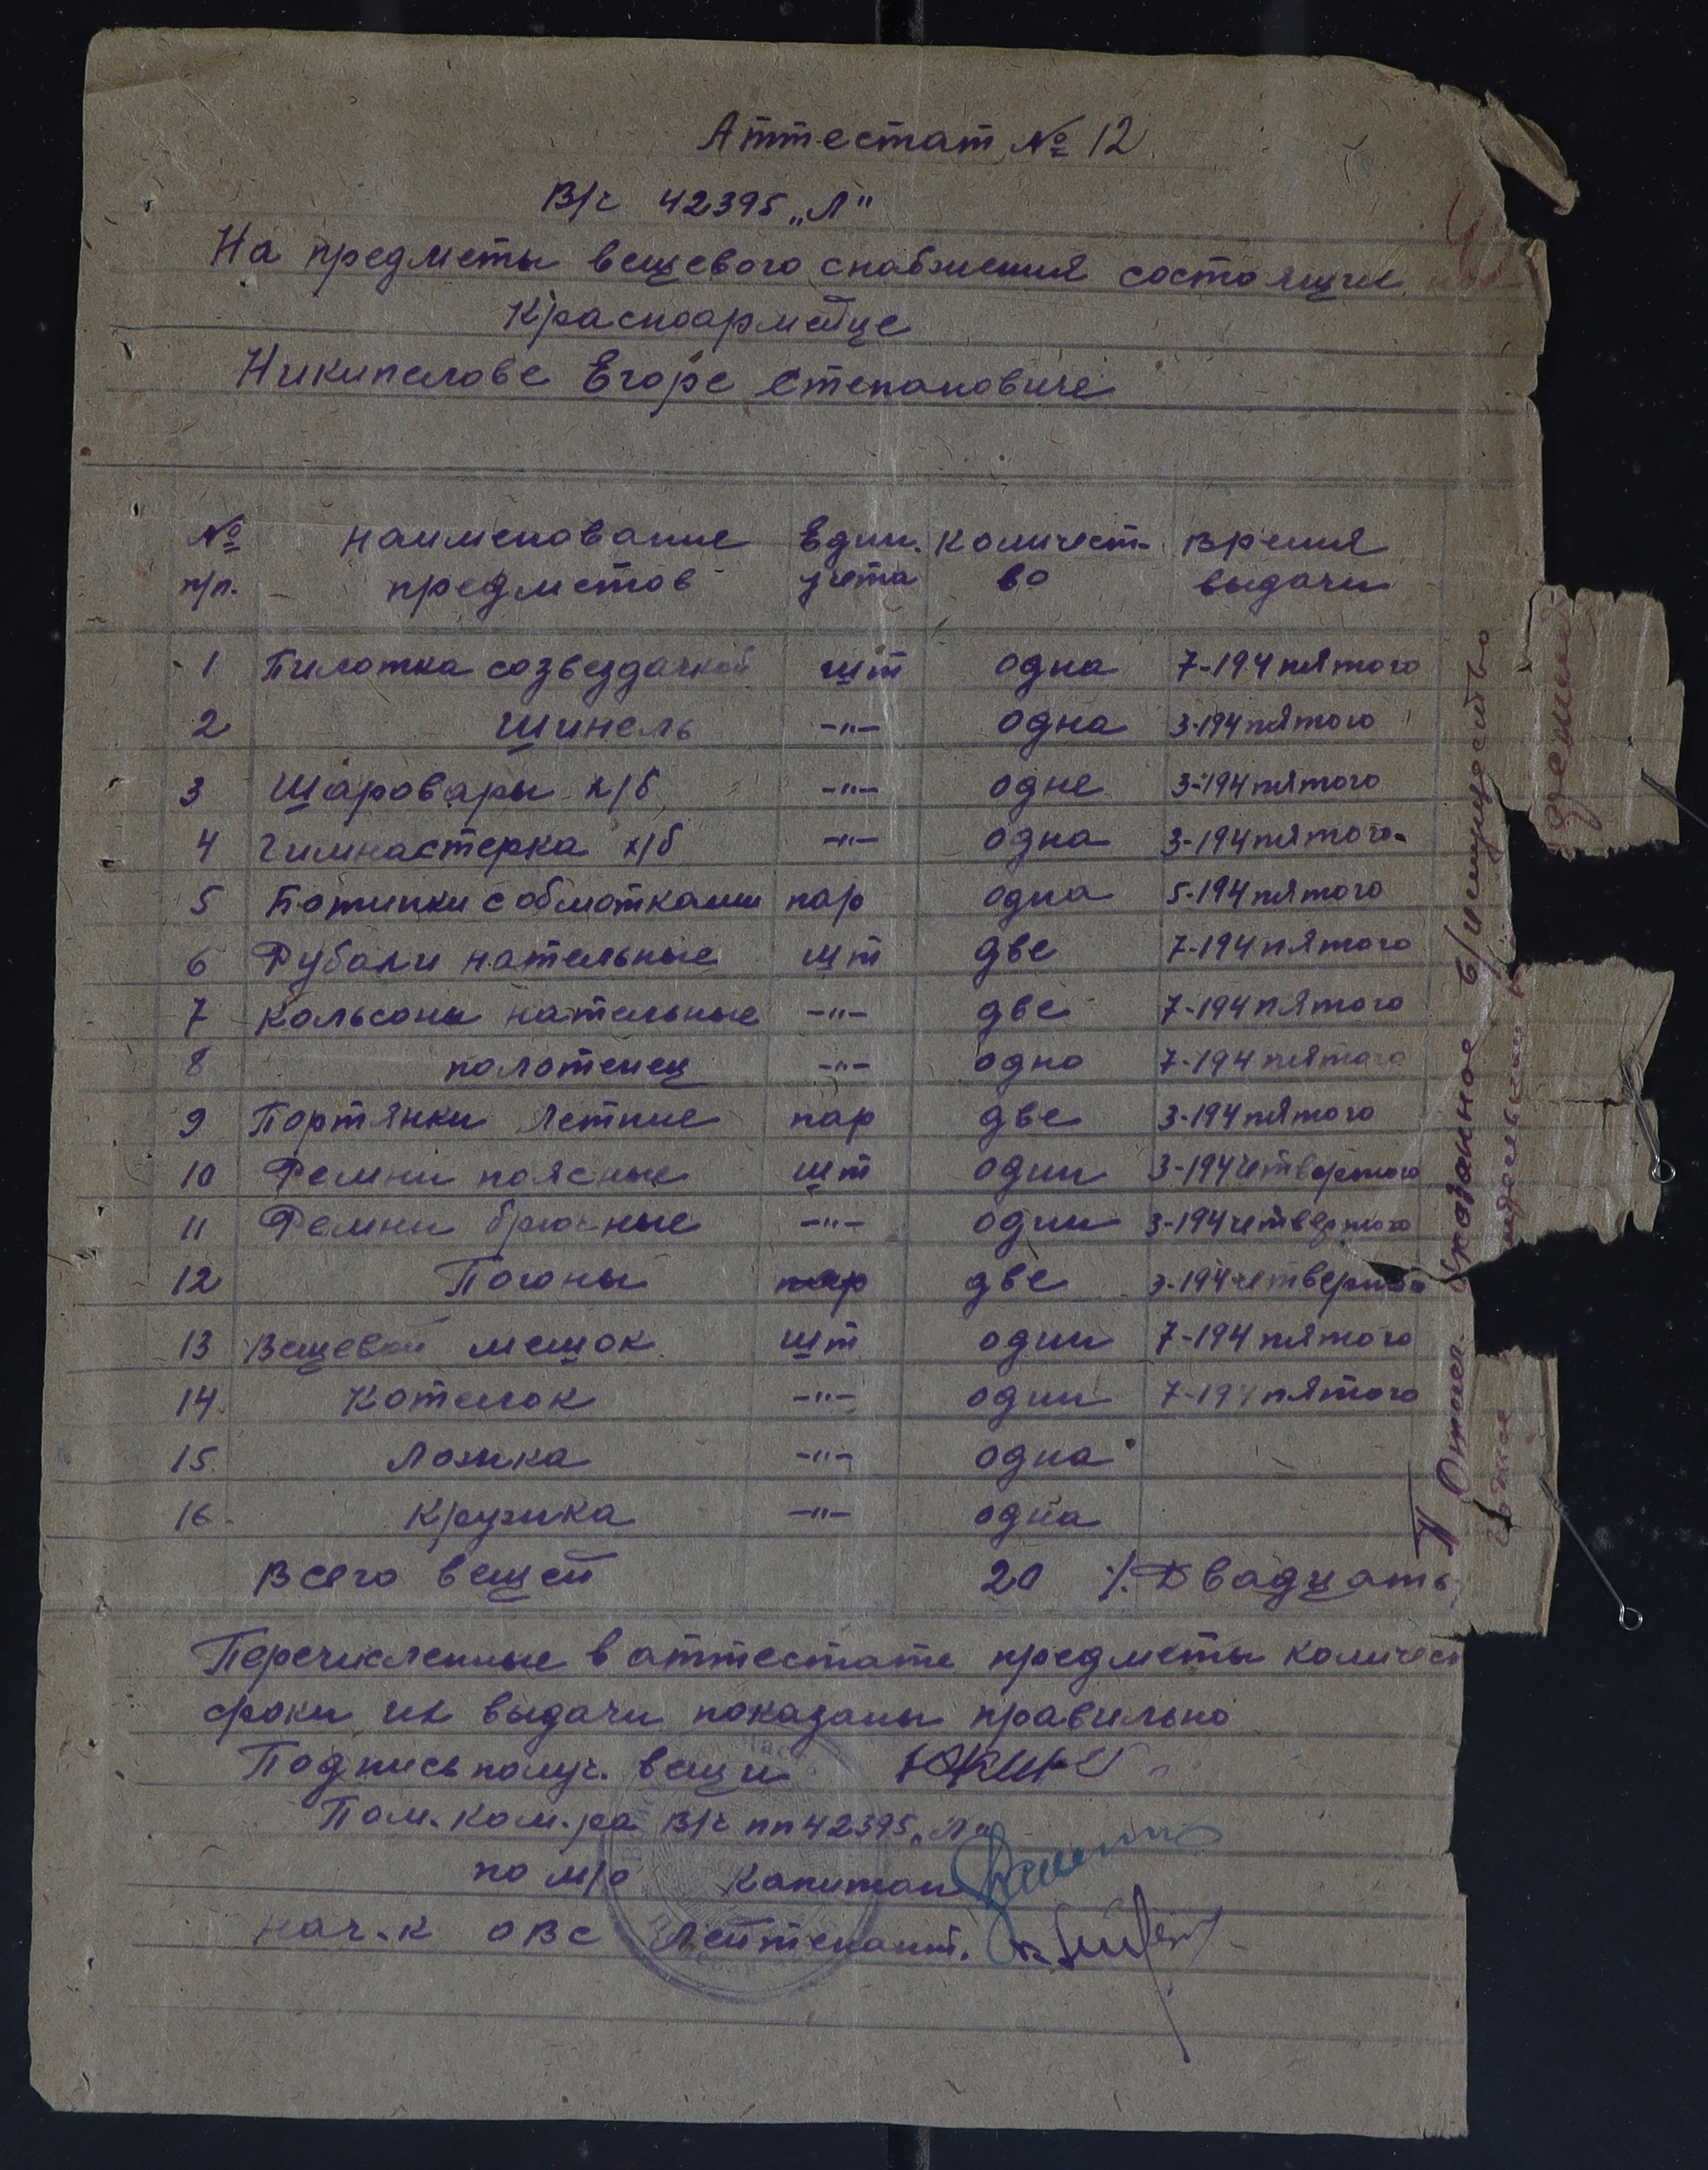 Аттестат № 12
В/ч 42395 „Л"
На предметы вещевого снабжения состоящие на
Красноармейце
Никипелове Егоре Степановиче
№ п/п. наименование предметов Един. учета количест-во время выдачи
1 Пилотка созвездачкой шт одна 7-194 пятого
2 Шинель -"- одна 3-194 пятого
3 Шаровары х/б -"- одне 3-194 пятого
4 Гимнастерка х/б -"- одна 3-194 пятого-
5 Ботинки с обмотками пар одна 5-194 пятого
6 Рубахи нательные шт две 7-194 пятого
7 Кальсоны нательные -"- две 7-194 пятого
8 полотенец -"- одно 7-194 пятого
9 Портянки летние пар две 3-194 пятого
10 Ремни поясные шт один 3-194 четвертого
11 Ремни брючные -"- один 3-194 четвертого
12 Погоны пар две 3-194 четвертого
13 Вещевой мешок шт один 7-194 пятого
14 Котелок -"- один 7-194 пятого
15. Ложка -"- одна
16. Кружка -"- одна
Всего вещей 20 /. Двадцать
Перечисленные в аттестате предметы количес
сроки их выдачи показаны правильно
Подпись получ. вещи
Пом. ком. ра В/ч пп 42395 „Л"
по м/о Капитан
нач.к ОВС Лейтенант.
указанное в/имущество